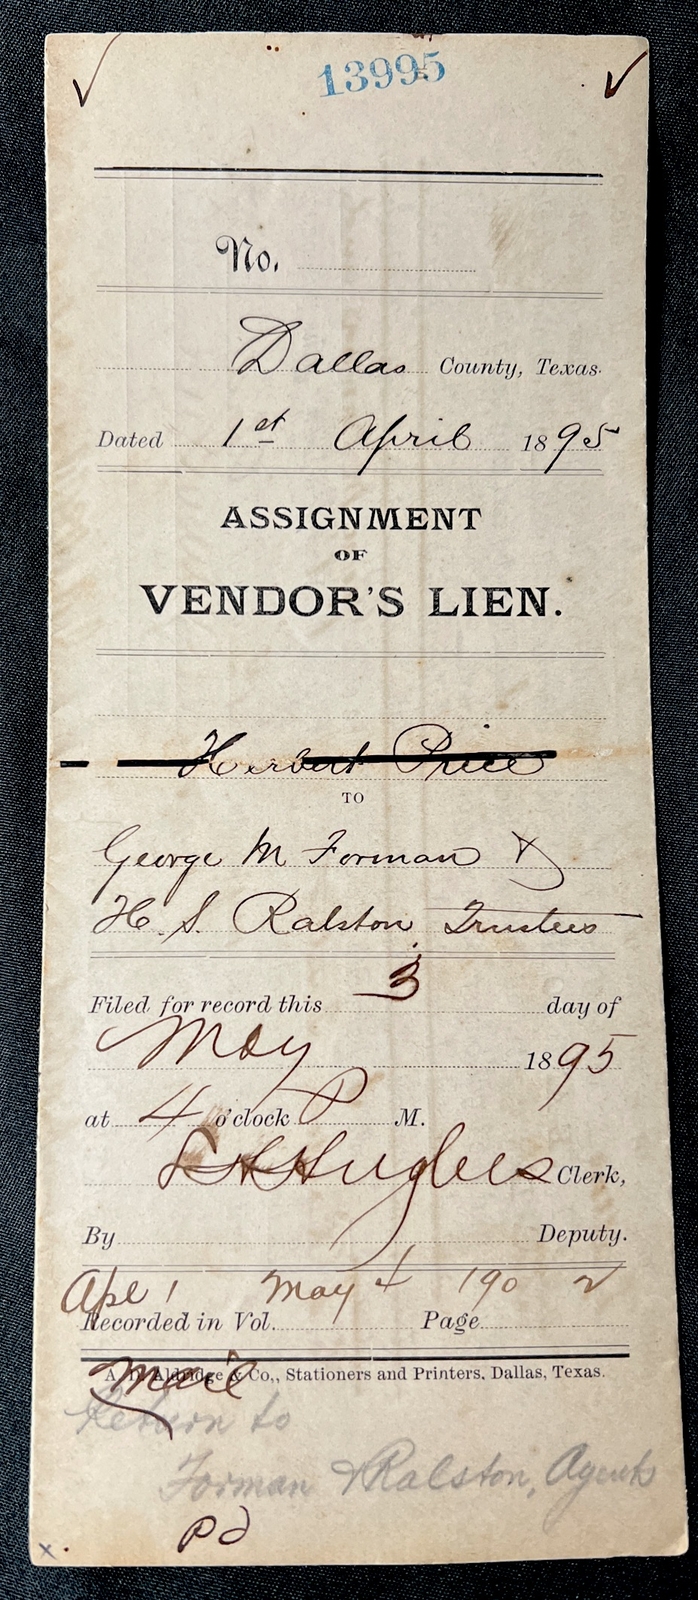 13995
No.
Dallas County, Texas.
Dated 1st April 1895
ASSIGNMENT
OF
VENDOR'S LIEN.
Herbert Price
TO
George M Forman &
H. S. Ralston Trustees
Filed for record this 3 day of
May 1895
at 4 o'clock P M.
Hughes Clerk,
By Deputy.
Apl 1 May 4 190 2
Recorded in Vol. Page
Mail
A. D. Aldridge & Co., Stationers and Printers, Dallas, Texas.
Return to
Forman & Ralston, Agents
Pd
x